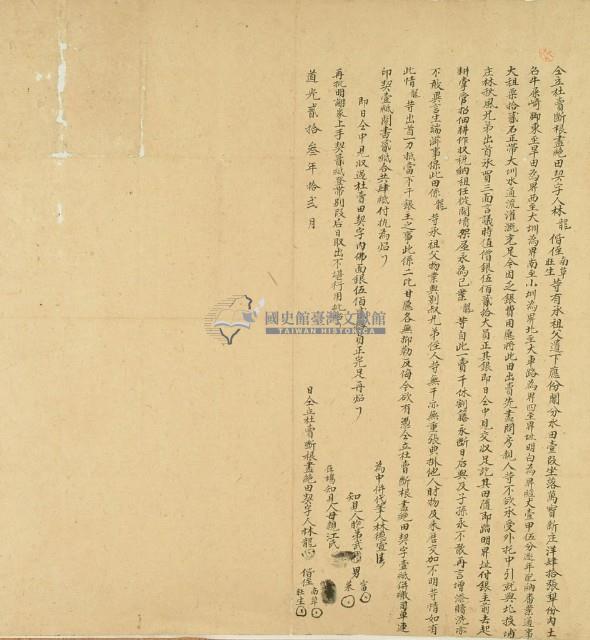 仝立杜賣斷根盡絕田契字人林龍 偕侄南草旺生等有承祖父遺下應份鬮分水田壹段坐落萬寶新庄洋肆拾張犁份內土
名牛屎崎腳東至旱田為界西至大圳為界南至小圳為界北至大車路為界四至界址明白為界經丈壹甲伍分逐年配納番業通事
大租粟拾貳石正帶大圳水通流灌溉充足今因乏銀費用應將此田出賣先盡問房親人等不欲承受外托中引就與北投湳
庄林秋風兄弟出首承買三面言議時值價銀伍佰貳拾大員正其銀即日仝中見交收足訖其田隨即踏明界址付銀主前去起
耕掌管招佃耕作收稅納租任從開墳架屋永為己業龍等自此一賣千休割籐永斷日後與及子孫永不敢再言增添贖洗亦
不敢異言生端滋事保此田係龍等承祖父物業與別叔兄弟侄人等無干亦無重張典掛他人財物及來歷交加不明等情如有
此情龍等出首一力抵當不干銀主之事此係二比甘愿各無抑勒反悔今欲有憑仝立杜賣斷根盡絕田契字壹紙併繳司單連
印契壹紙鬮書貳紙合共肆紙付執為炤
即日仝中見收過杜賣田契字內佛面銀伍佰 員正完足再炤
再批明 上手契貳紙 別段后日取出不堪行用
為中併代筆人林德宣
知見人 弟武 男
在場知見人母親江氏
道光貳拾叁年拾弍月 日仝立杜賣斷根盡絕田契字人林龍 偕侄南草旺生
國史館臺灣文獻館
TAIWAN HISTORICA